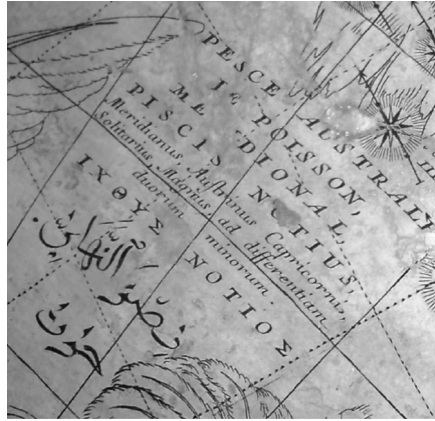 PESCE AUSTRAL
POISSON,
ME DIONAL,
PISCIS NOTIUS
Meridianus, Austrinus Capricornis,
Solitarius Magnus ad differentiam
duorum minorum
ΙΧΘΥΣ ΝΟΤΙΟΣ
حوت